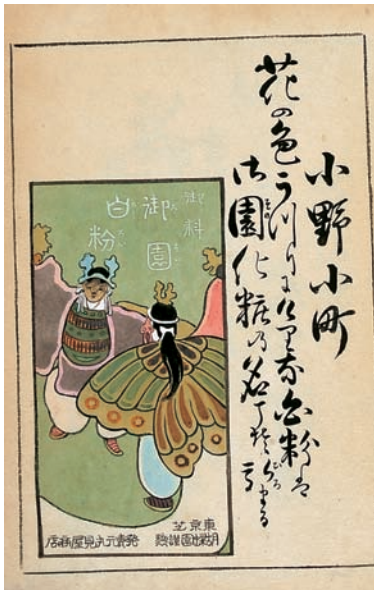 小野小町
花の色うつりにけりな白粉は
御園化粧の名こそひろまる
御料
御園
白粉
東京芝
胡蝶園謹製
発売元丸見屋商店